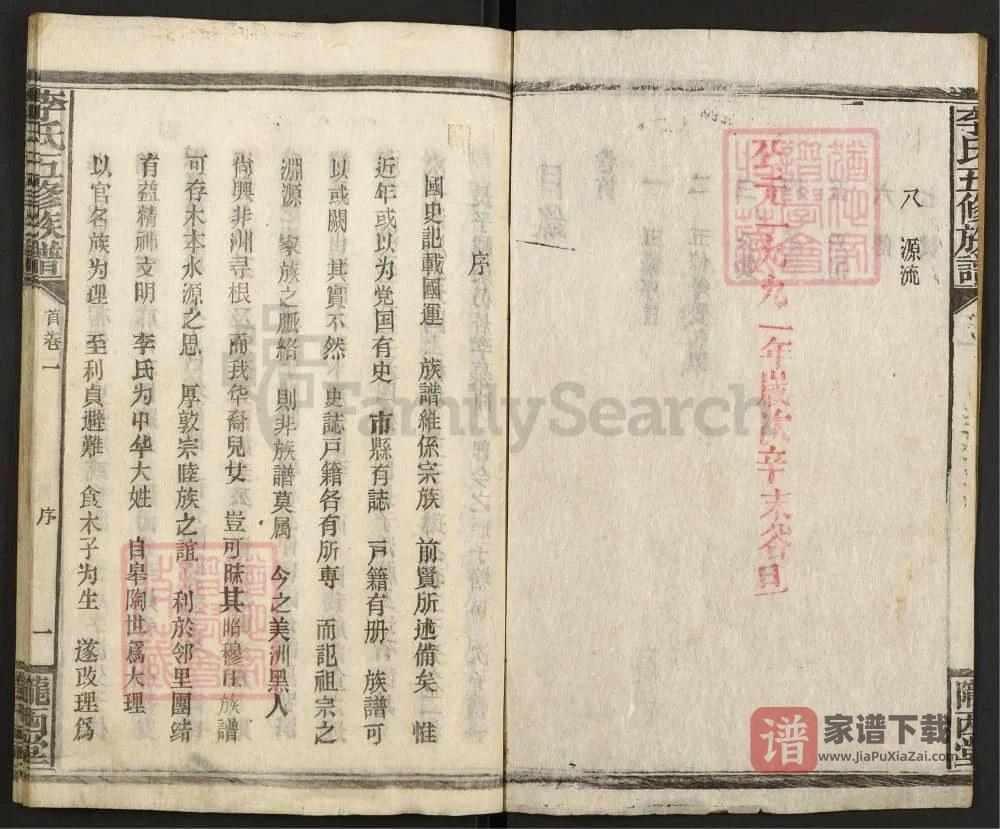 李氏五修族譜
隴西堂
八 源流
公元一九九一年歲次辛未谷旦
序
國史記載國運 族譜維係宗族 前賢所述備矣 惟
近年或以为党国有史 市縣有誌 戸籍有册 族譜可
以或闕 其實不然 史誌戸籍各有所専 而記祖宗之
淵源 家族之脈絡 則非族譜莫属 今之美洲黑人
尚興非洲尋根 而我华裔兒女 豈可昧其昭穆 族譜
可存木本水源之思 厚敦宗睦族之誼 利於邻里團结
有益精神文明 李氏为中华大姓 自皋陶世爲大理
以官名族为理 至利貞避難 食木子为生 遂改理爲
李氏五修族譜
首卷一
序
一
隴西堂
FamilySearch
谱
家谱下载
www.JiaPuXiaZai.com